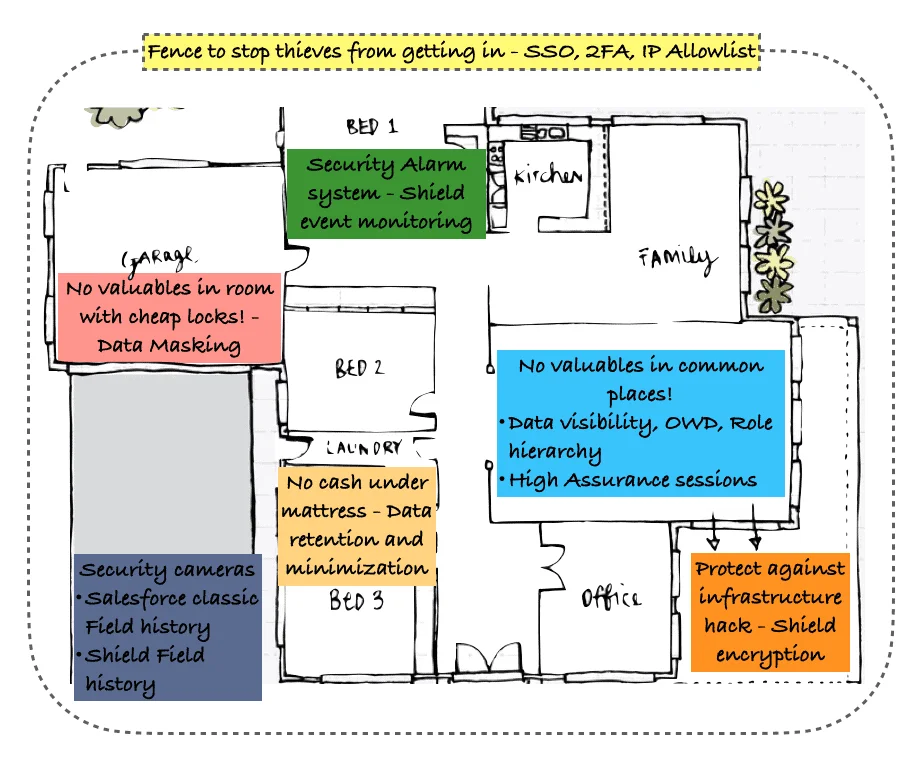 Fence to stop thieves from getting in - SSO, 2FA, IP Allowlist
BED 1
Security Alarm
system - Shield
event monitoring
Kitchen
GARAGE
FAMILY
No valuables in room
with cheap locks! -
Data Masking
BED 2
No valuables in common
places!
•Data visibility, OWD, Role
hierarchy
•High Assurance sessions
LAUNDRY
No cash under
mattress - Data
retention and
minimization
BED 3
Security cameras
•Salesforce classic
Field history
•Shield Field
history
Office
Protect against
infrastructure
hack - Shield
encryption